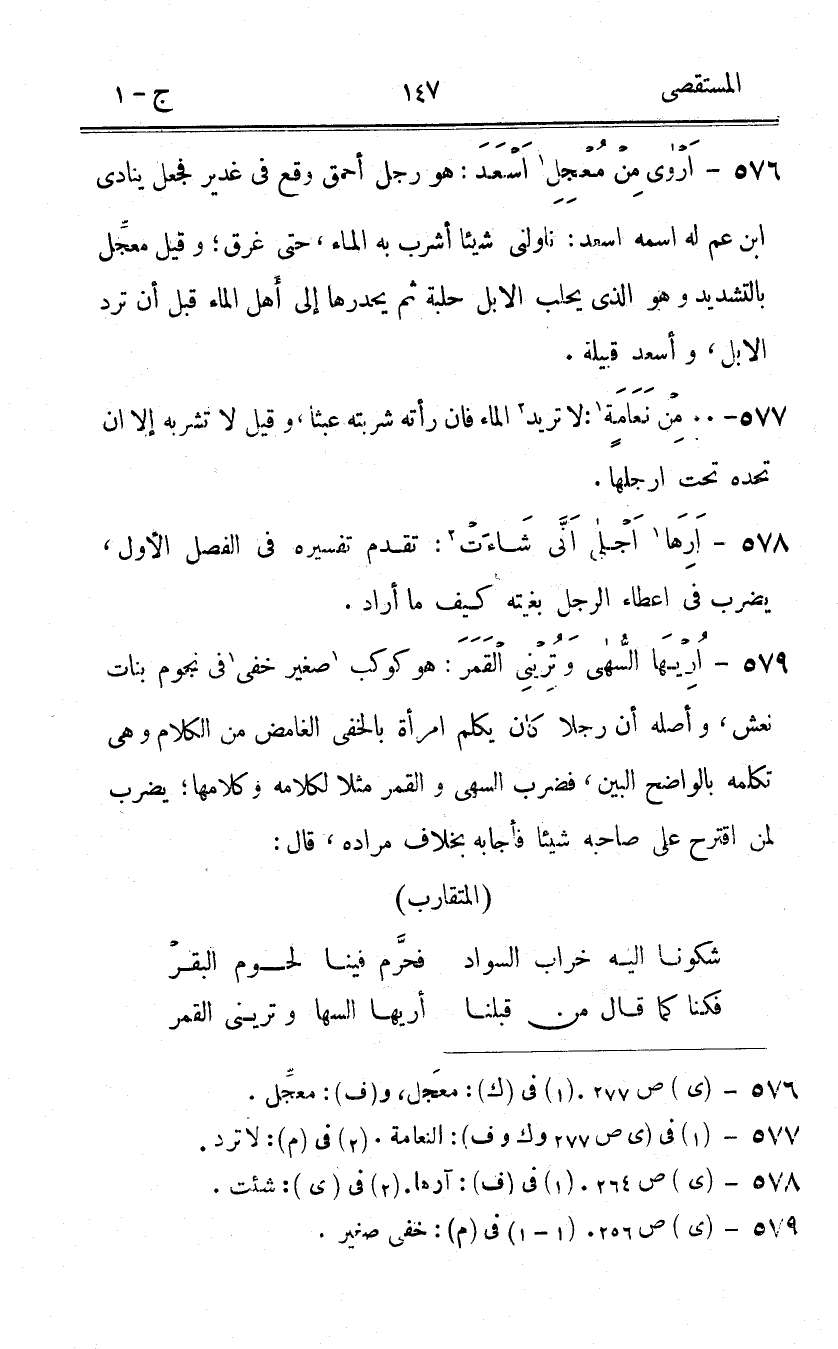 المستقصى ١٤٧ ج - ١
٥٧٦ - أَرْوَى مِنْ مُعْجِلِ١ أَسْعَدَ : هو رجل أحمق وقع فى غدير فجعل ينادى
ابن عم له اسمه اسعد : ناولنى شيئا أشرب به الماء ، حتى غرق ؛ و قيل معجِّل
بالتشديد و هو الذى يحلب الابل حلبة ثم يحدرها إلى أهل الماء قبل أن ترد
الابل ، و أسعد قبيلة .
٥٧٧- ٠٠ مِنْ نَعَامَةٍ١ : لا تريد٢ الماء فان رأته شربته عبثا ، و قيل لا تشربه إلا ان
تحده تحت ارجلها .
٥٧٨ - أَرِهَا١ أَجَلٰى أَنَّى شَاءَتْ٢ : تقدم تفسيره فى الفصل الأول ،
يضرب فى اعطاء الرجل بغيته كيف ما أراد .
٥٧٩ - أُرِيْهَا السُّهٰى وَ تُرِيْنِى الْقَمَرَ : هو كوكب ١صغير خفى١ فى نجوم بنات
نعش ، و أصله أن رجلا كان يكلم امرأة بالخفى الغامض من الكلام و هى
تكلمه بالواضح البين ، فضرب السهى و القمر مثلا لكلامه و كلامها ؛ يضرب
لمن اقترح على صاحبه شيئا فأجابه بخلاف مراده ، قال :
(المتقارب)
شكونا اليه خراب السواد فحرَّم فينا لحوم البقرْ
فكنا كما قال من قبلنا أريها السها و ترينى القمر
٥٧٦ - (ى) ص ٢٧٧ . (١) فى (ك) : معجَل، و(ف) : معجِّل .
٥٧٧ - (١) فى (ى ص ٢٧٧ وك و ف) : النعامة . (٢) فى (م) : لا ترد .
٥٧٨ - (ى) ص ٢٦٤ . (١) فى (ف) : آرها . (٢) فى (ى) : شئت .
٥٧٩ - (ى) ص ٢٥٦ . (١ - ١) فى (م) : خفى صغير .